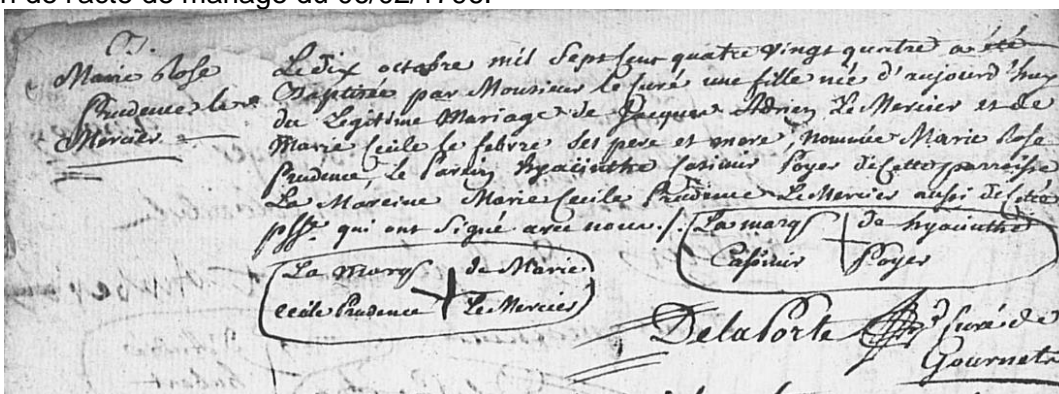 n de l'acte de mariage du 06/02/1798.
B.
Marie Rose
Prudence Le
Mercier
Le dix octobre mil Sept Cent quatre vingt quatre a été
Baptisée par Monsieur le Curé une fille née d'aujourd'huy
du Legitime Mariage de Jacques Adrien Le Mercier et de
Marie Cecile le febvre Ses pere et mere, nommée Marie Rose
Prudence, Le Parein hyacinthe Casimir Poyer de Cette parroisse
La Mareine Marie Cecile Prudence Le Mercier aussi de Cette
psse qui ont Signé avec nous ./.
La marq de hyacinthe
Casimir Poyer
La marq de Marie
cecile Prudence Le Mercier
Delaporte Curé de
Gournets